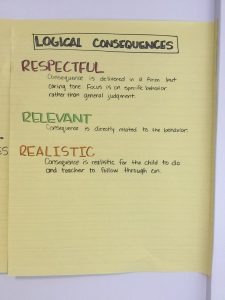 LOGICAL CONSEQUENCES
RESPECTFUL
Consequence is delivered in a firm but
caring tone. Focus is on specific behavior
rather than general judgment.
RELEVANT
Consequence is directly related to the behavior.
REALISTIC
Consequence is realistic for the child to do
and teacher to follow through on.